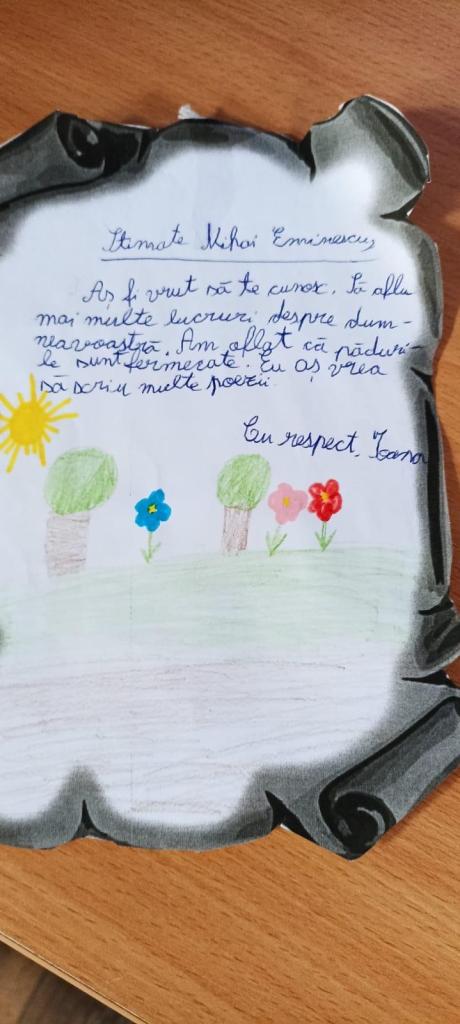 Stimate Mihai Eminescu,
Aș fi vrut să te cunosc. Să aflu
mai multe lucruri despre dum-
neavoastră. Am aflat că păduri-
le sunt fermecate. Eu aș vrea
să scriu multe poezii.
Cu respect, Ioana